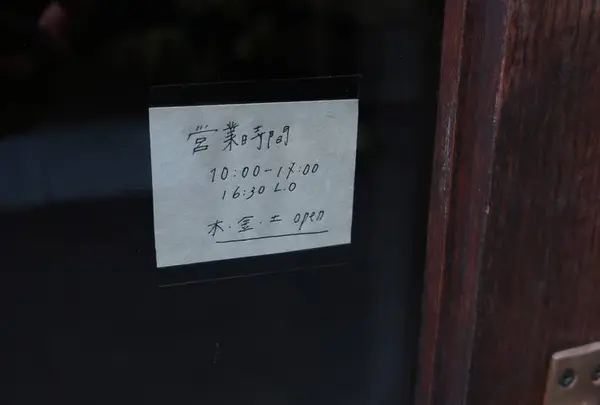 営業時間
10:00-17:00
16:30 L.O
木・金・土 open